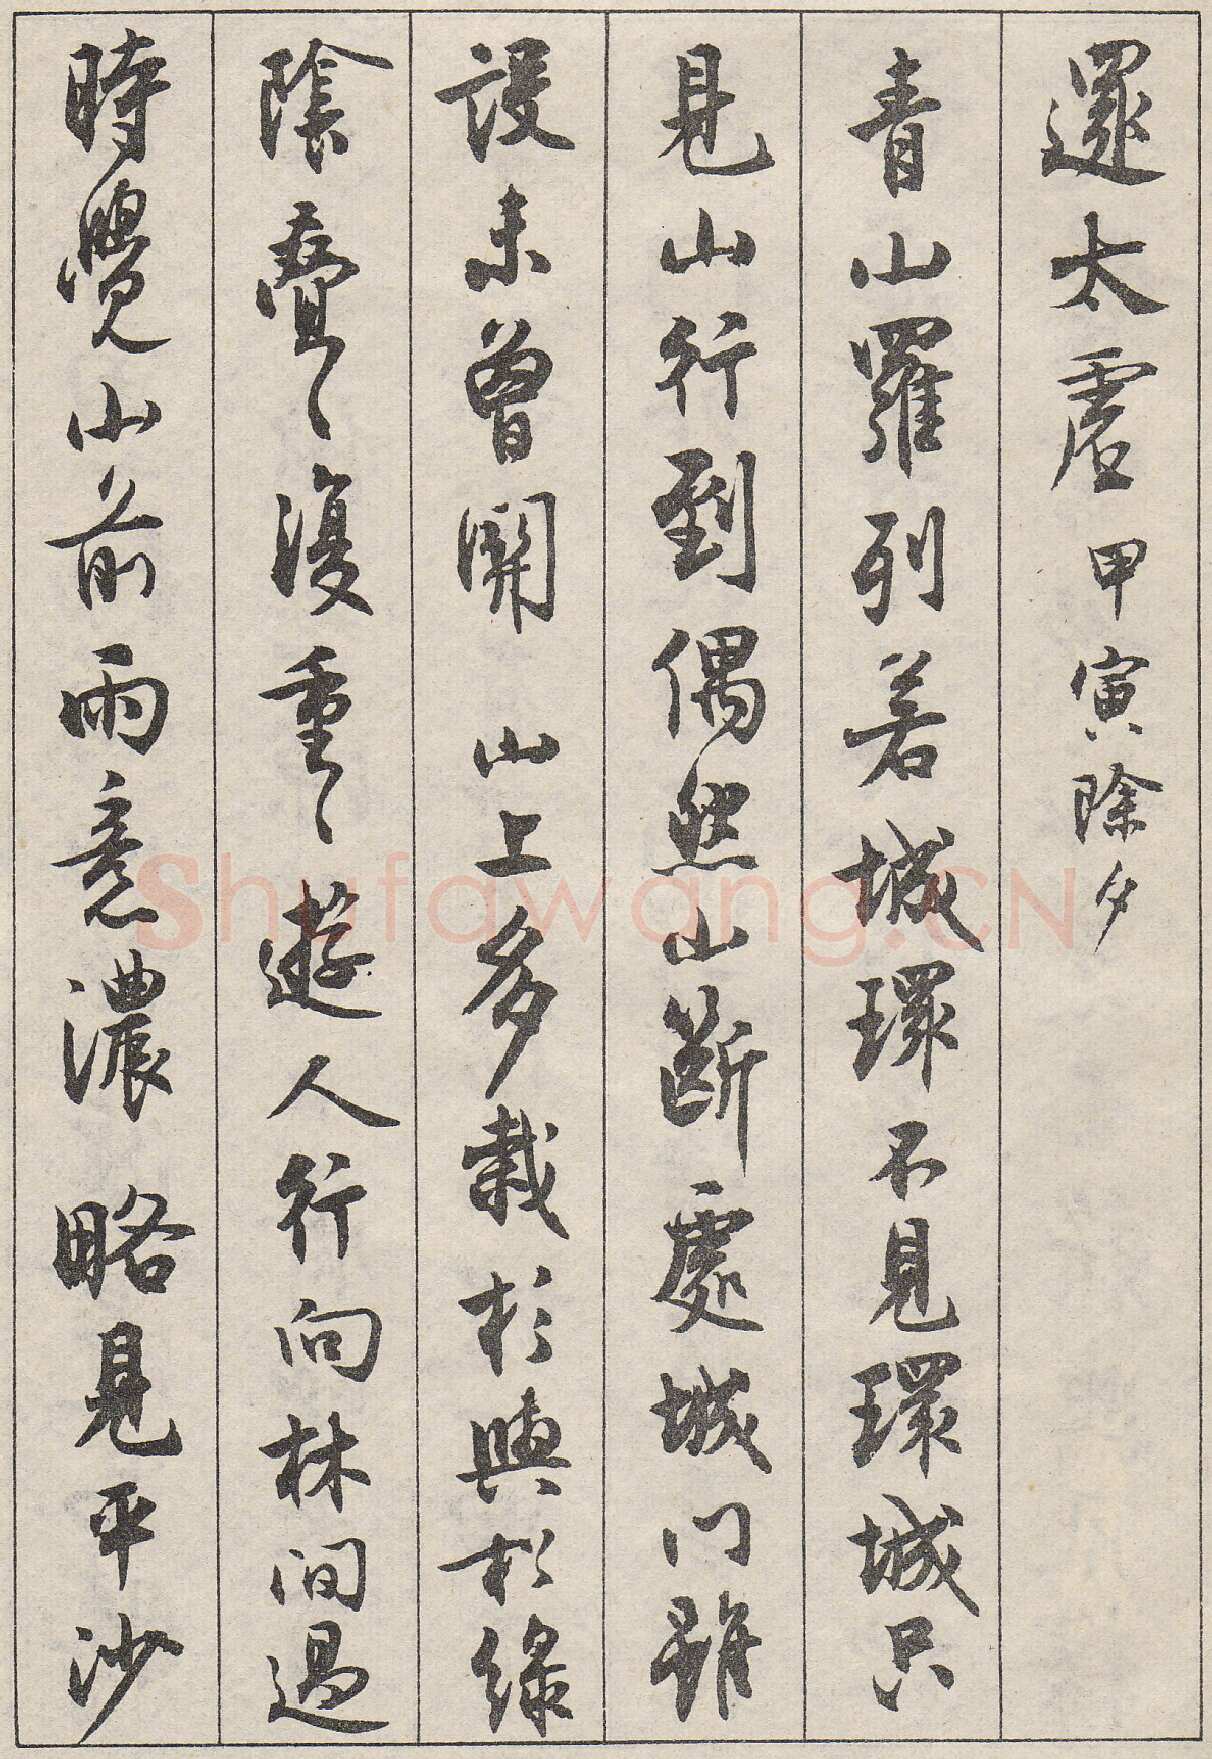 邏太虛甲寅除夕
青山羅列若城環不見環城只
見山行到偶然山斷處城門雖
設未曾關 山上多栽杉與松綠
陰疊〻復重〻遊人行向林間過
時覺山前雨意濃 略見平沙
Shufawang.CN